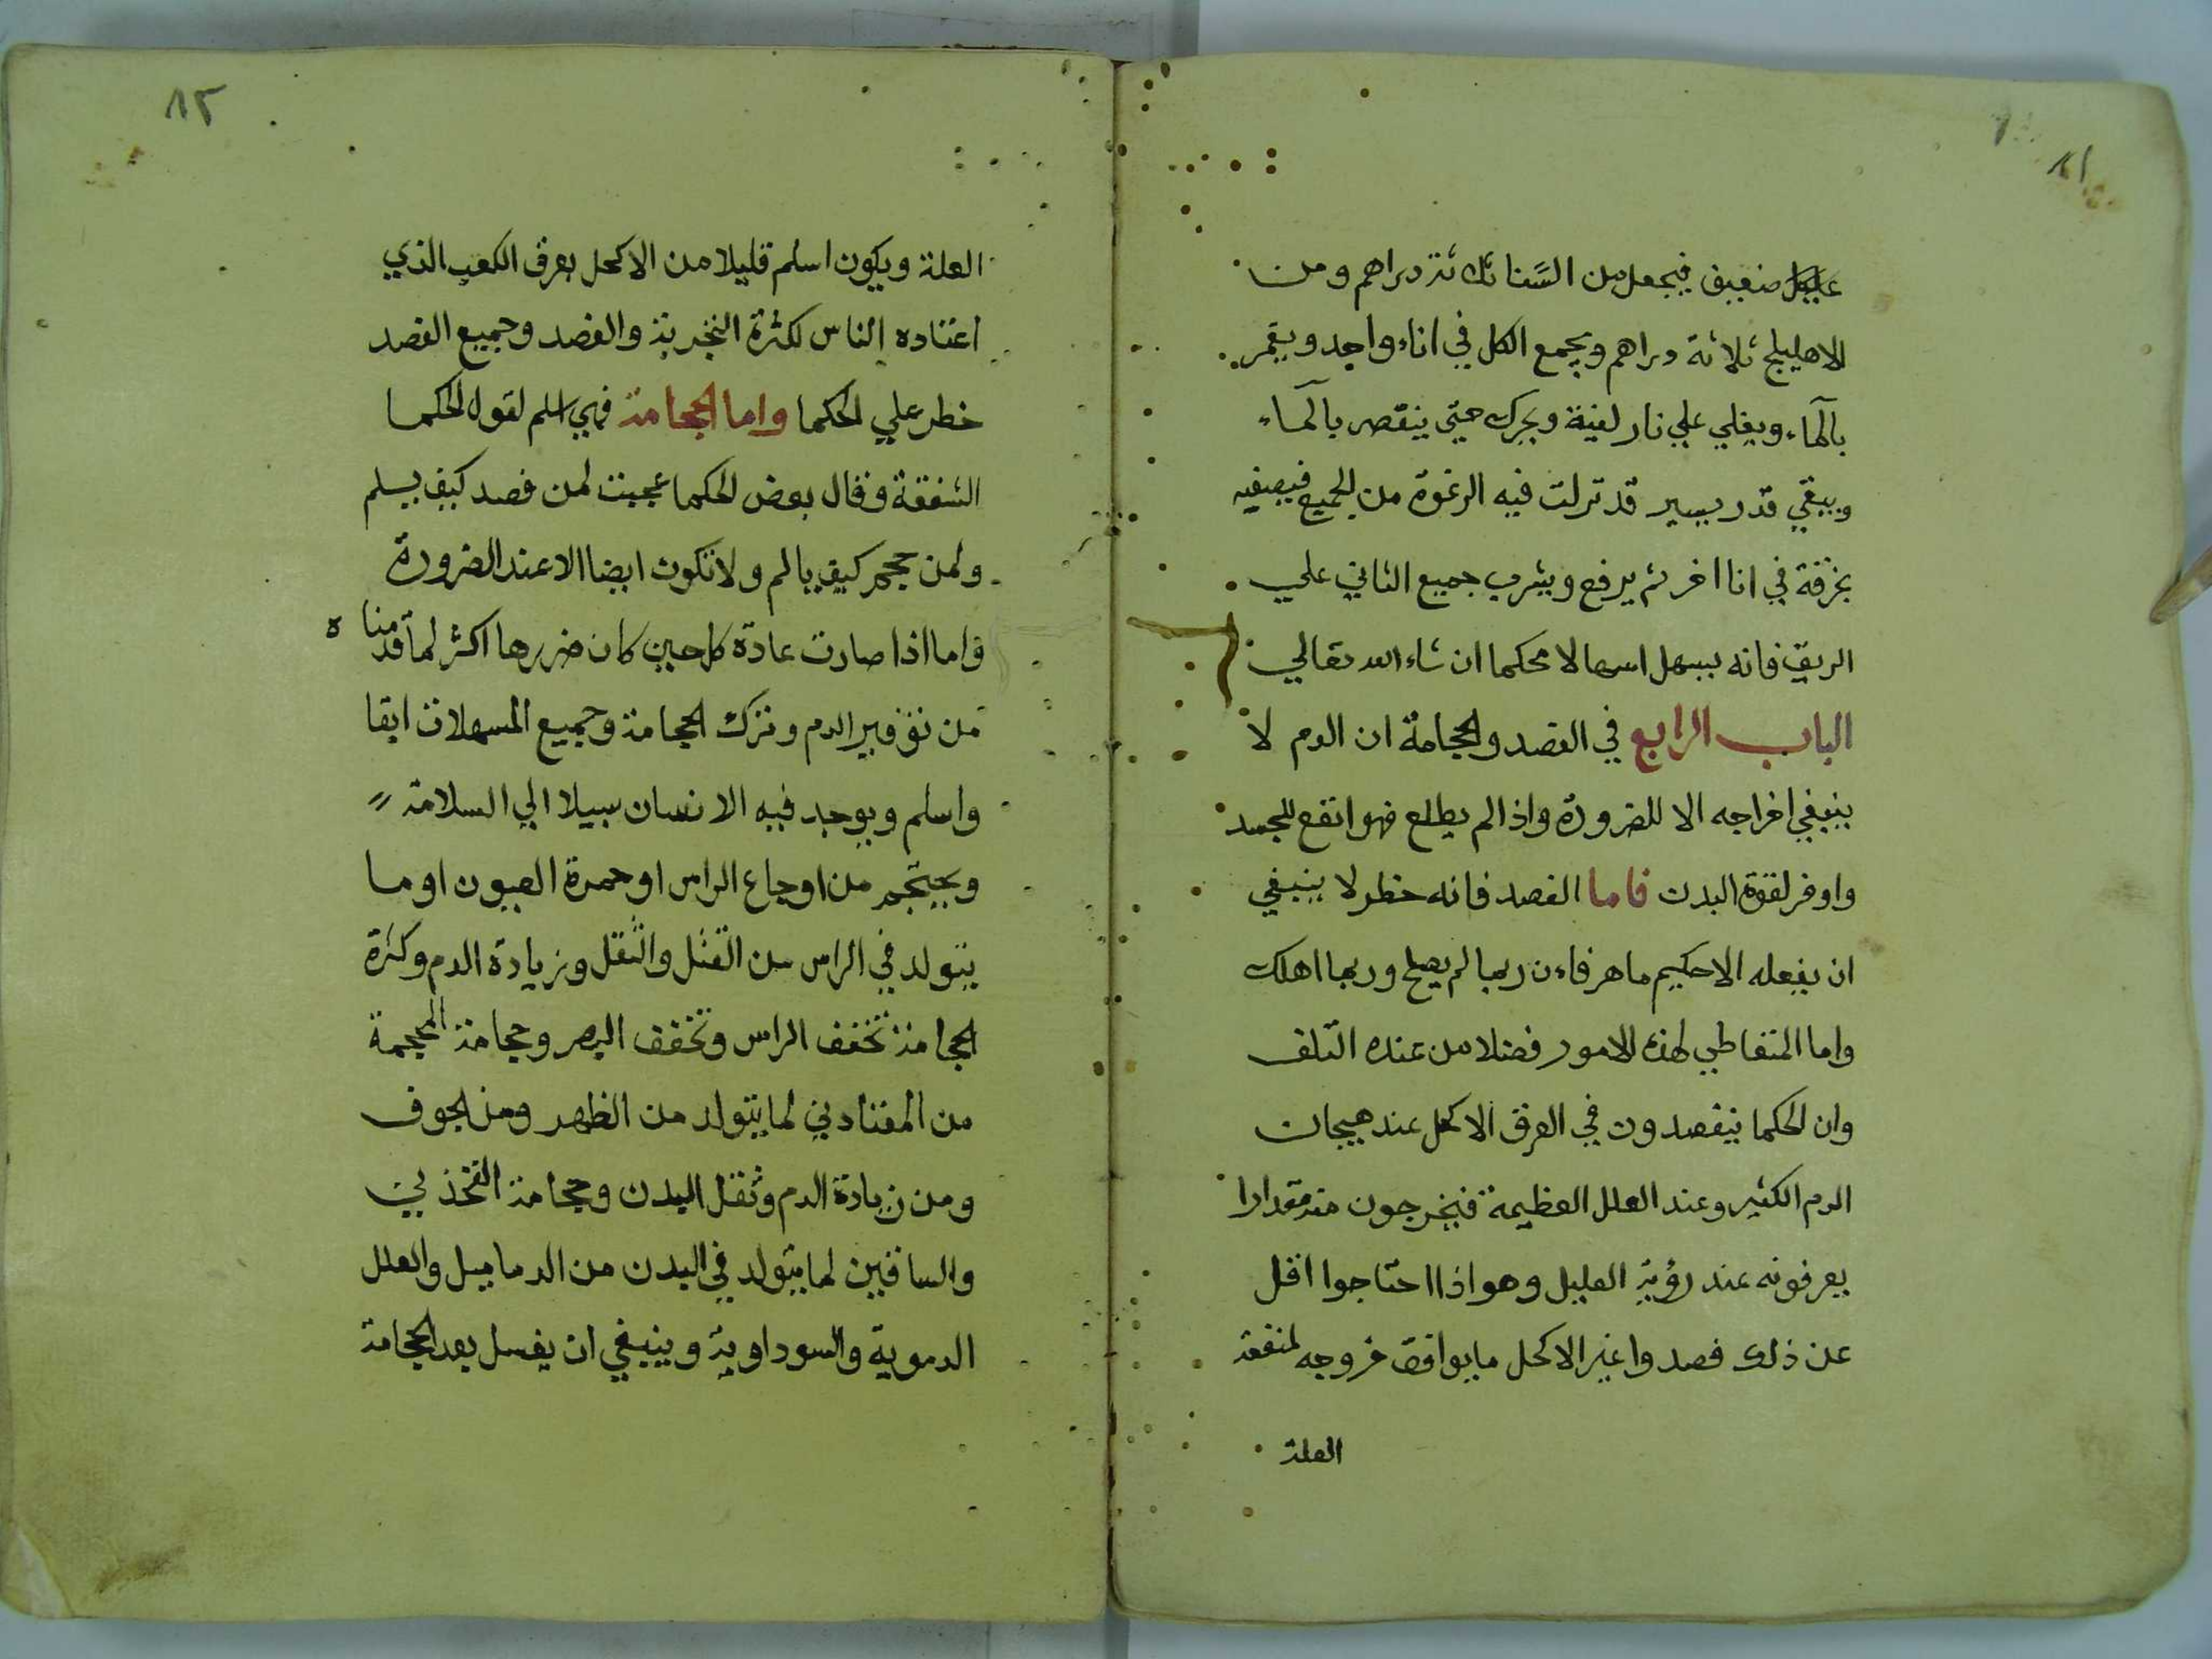 ٨١
ضعيف فيجعل من السنا ثلاثة دراهم ومن
الاهليلج ثلاثة دراهم ويجمع الكل في اناء واحد ويغمر
بالماء ويغلي علي نار لينة ويحرك حتي ينقص بالماء
ويبقي قدر يسير قد نزلت فيه الرغوة من الجميع فيصفيه
بخرقة في انا اخر ثم يرفع ويشرب جميع الثاني علي
الريق فانه يسهل اسهالا محكما ان شاء الله تعالي
الباب الرابع في الفصد والحجامة ان الدم لا
ينبغي اخراجه الا للضرورة واذا لم يطلع فهو انفع للجسد
واوفر لقوة البدن فاما الفصد فانه خطر لا ينبغي
ان يفعله الا حكيم ماهر فاءن ربما لم يصلح وربما اهلك
واما المتعاطي لهذه الامور فضلا من عنده التلف
وان الحكما يتفصدون في العرق الاكحل عند هيجان
الدم الكثير وعند العلل العظيمة فيخرجون منه مقدارا
يعرفونه عند رؤية العليل وهو اذا احتاجوا اقل
من ذلك فصدوا غير الاكحل ما يوافق خروجه لمنفعة
العلة
٨٢
العلة ويكون اسلم قليلا من الاكحل بعرق الكعب الذي
اعتاده الناس لكثرة التجربة والفصد وجميع الفصد
خطر علي الحكما واما الحجامة فهي اسلم لقول الحكما
الشفقة وقال بعض الحكما عجبت لمن فصد كيف يسلم
ولمن حجم كيف يالم ولا تكون ايضا الا عند الضرورة
واما اذا صارت عادة كل حين كان ضررها اكثر لما قدمنا ه
من توفير الدم وترك الحجامة وجميع المسهلات ابقا
واسلم ويوجد فيه الانسان سبيلا الي السلامة
ويحتجم من اوجاع الراس او حمرة العيون او ما
يتولد في الراس من القتل والثقل وزيادة الدم وكثرة
الحجامة تخفف الراس وتخفف البصر وحجامة المحجمة
من المعتادين لما يتولد من الظهر ومن الجوف
ومن زيادة الدم وثقل البدن وحجامة الفخذين
والساقين لما يتولد في البدن من الدماميل والعلل
الدموية والسوداوية وينبغي ان يغسل بعد الحجامة